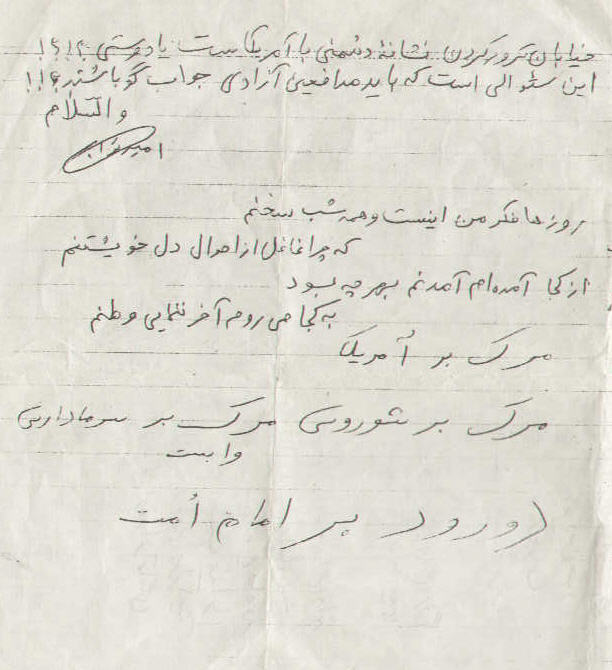 خیابان ترور کردن نشانهٔ دشمنی با آمریکاست یا دوستی؟!؟!
این سئوالی است که باید مدافعین آزادی جواب گو باشند؟!!
والسّلام
روزها فکر من اینست و همه شب سخنم
که چرا غافل از احوال دل خویشتنم
از کجا آمده‌ام آمدنم بهر چه بود
به کجا می روم آخر ننمایی وطنم
مرگ بر اُمریکا
مرگ بر شوروی مرگ بر سرماداری
وابست
درورد بر امام اُمت